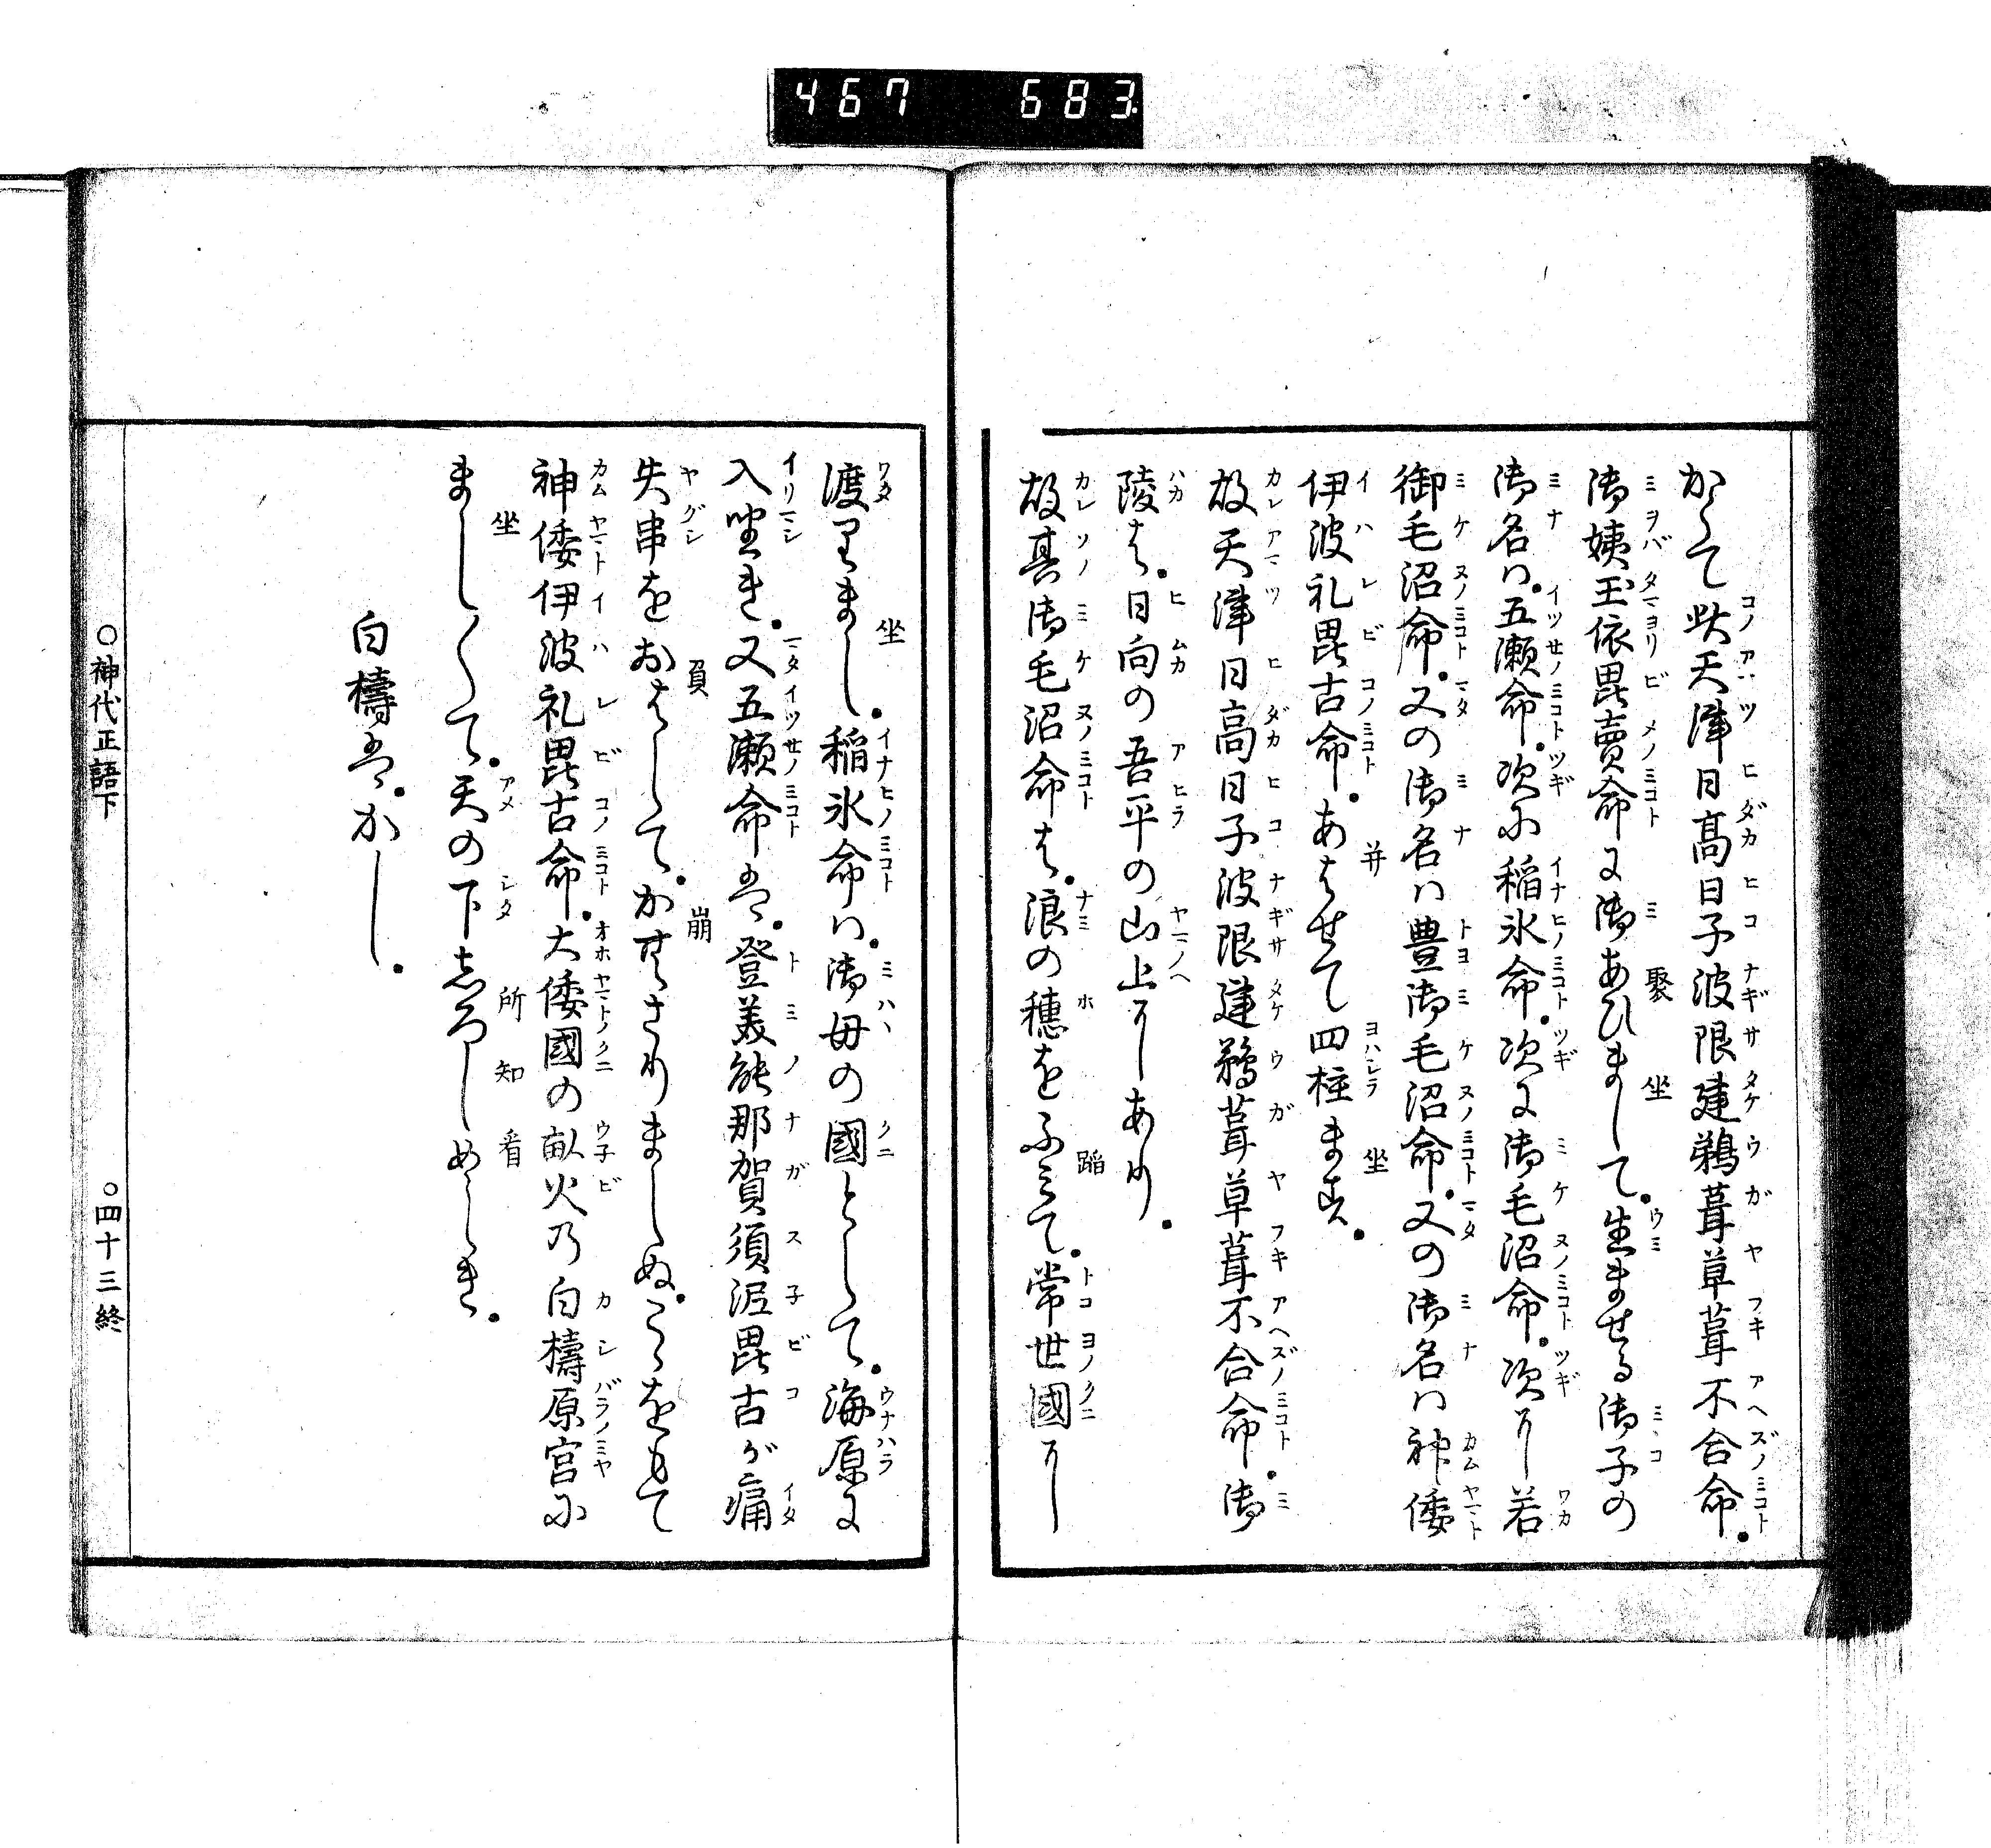 467 683
かくて此天津日高日子波限建鵜葺草葺不合命。
御姨玉依毘賣命に御あひまして。生ませる御子の
御名は。五瀬命。次に稲氷命。次に御毛沼命。次に若
御毛沼命。又の御名は豊御毛沼命。又の御名は神倭
伊波礼毘古命。あはせて四柱ます。
故天津日高日子波限建鵜葺草葺不合命。御
陵は。日向の吾平の山上にあり。
故其御毛沼命は。浪の穂をふみて。常世國に
渡りまし。稲氷命は。御毋の國として。海原に
入坐き。又五瀬命は。登美能那賀須泥毘古が痛
矢串をおはして。かむさりましぬ。こゝをもて
神倭伊波礼毘古命。大倭國の畝火乃白檮原宮に
ましくて。天の下しろしめしき。
白檮は。かし。
○神代正語下
○四十三終